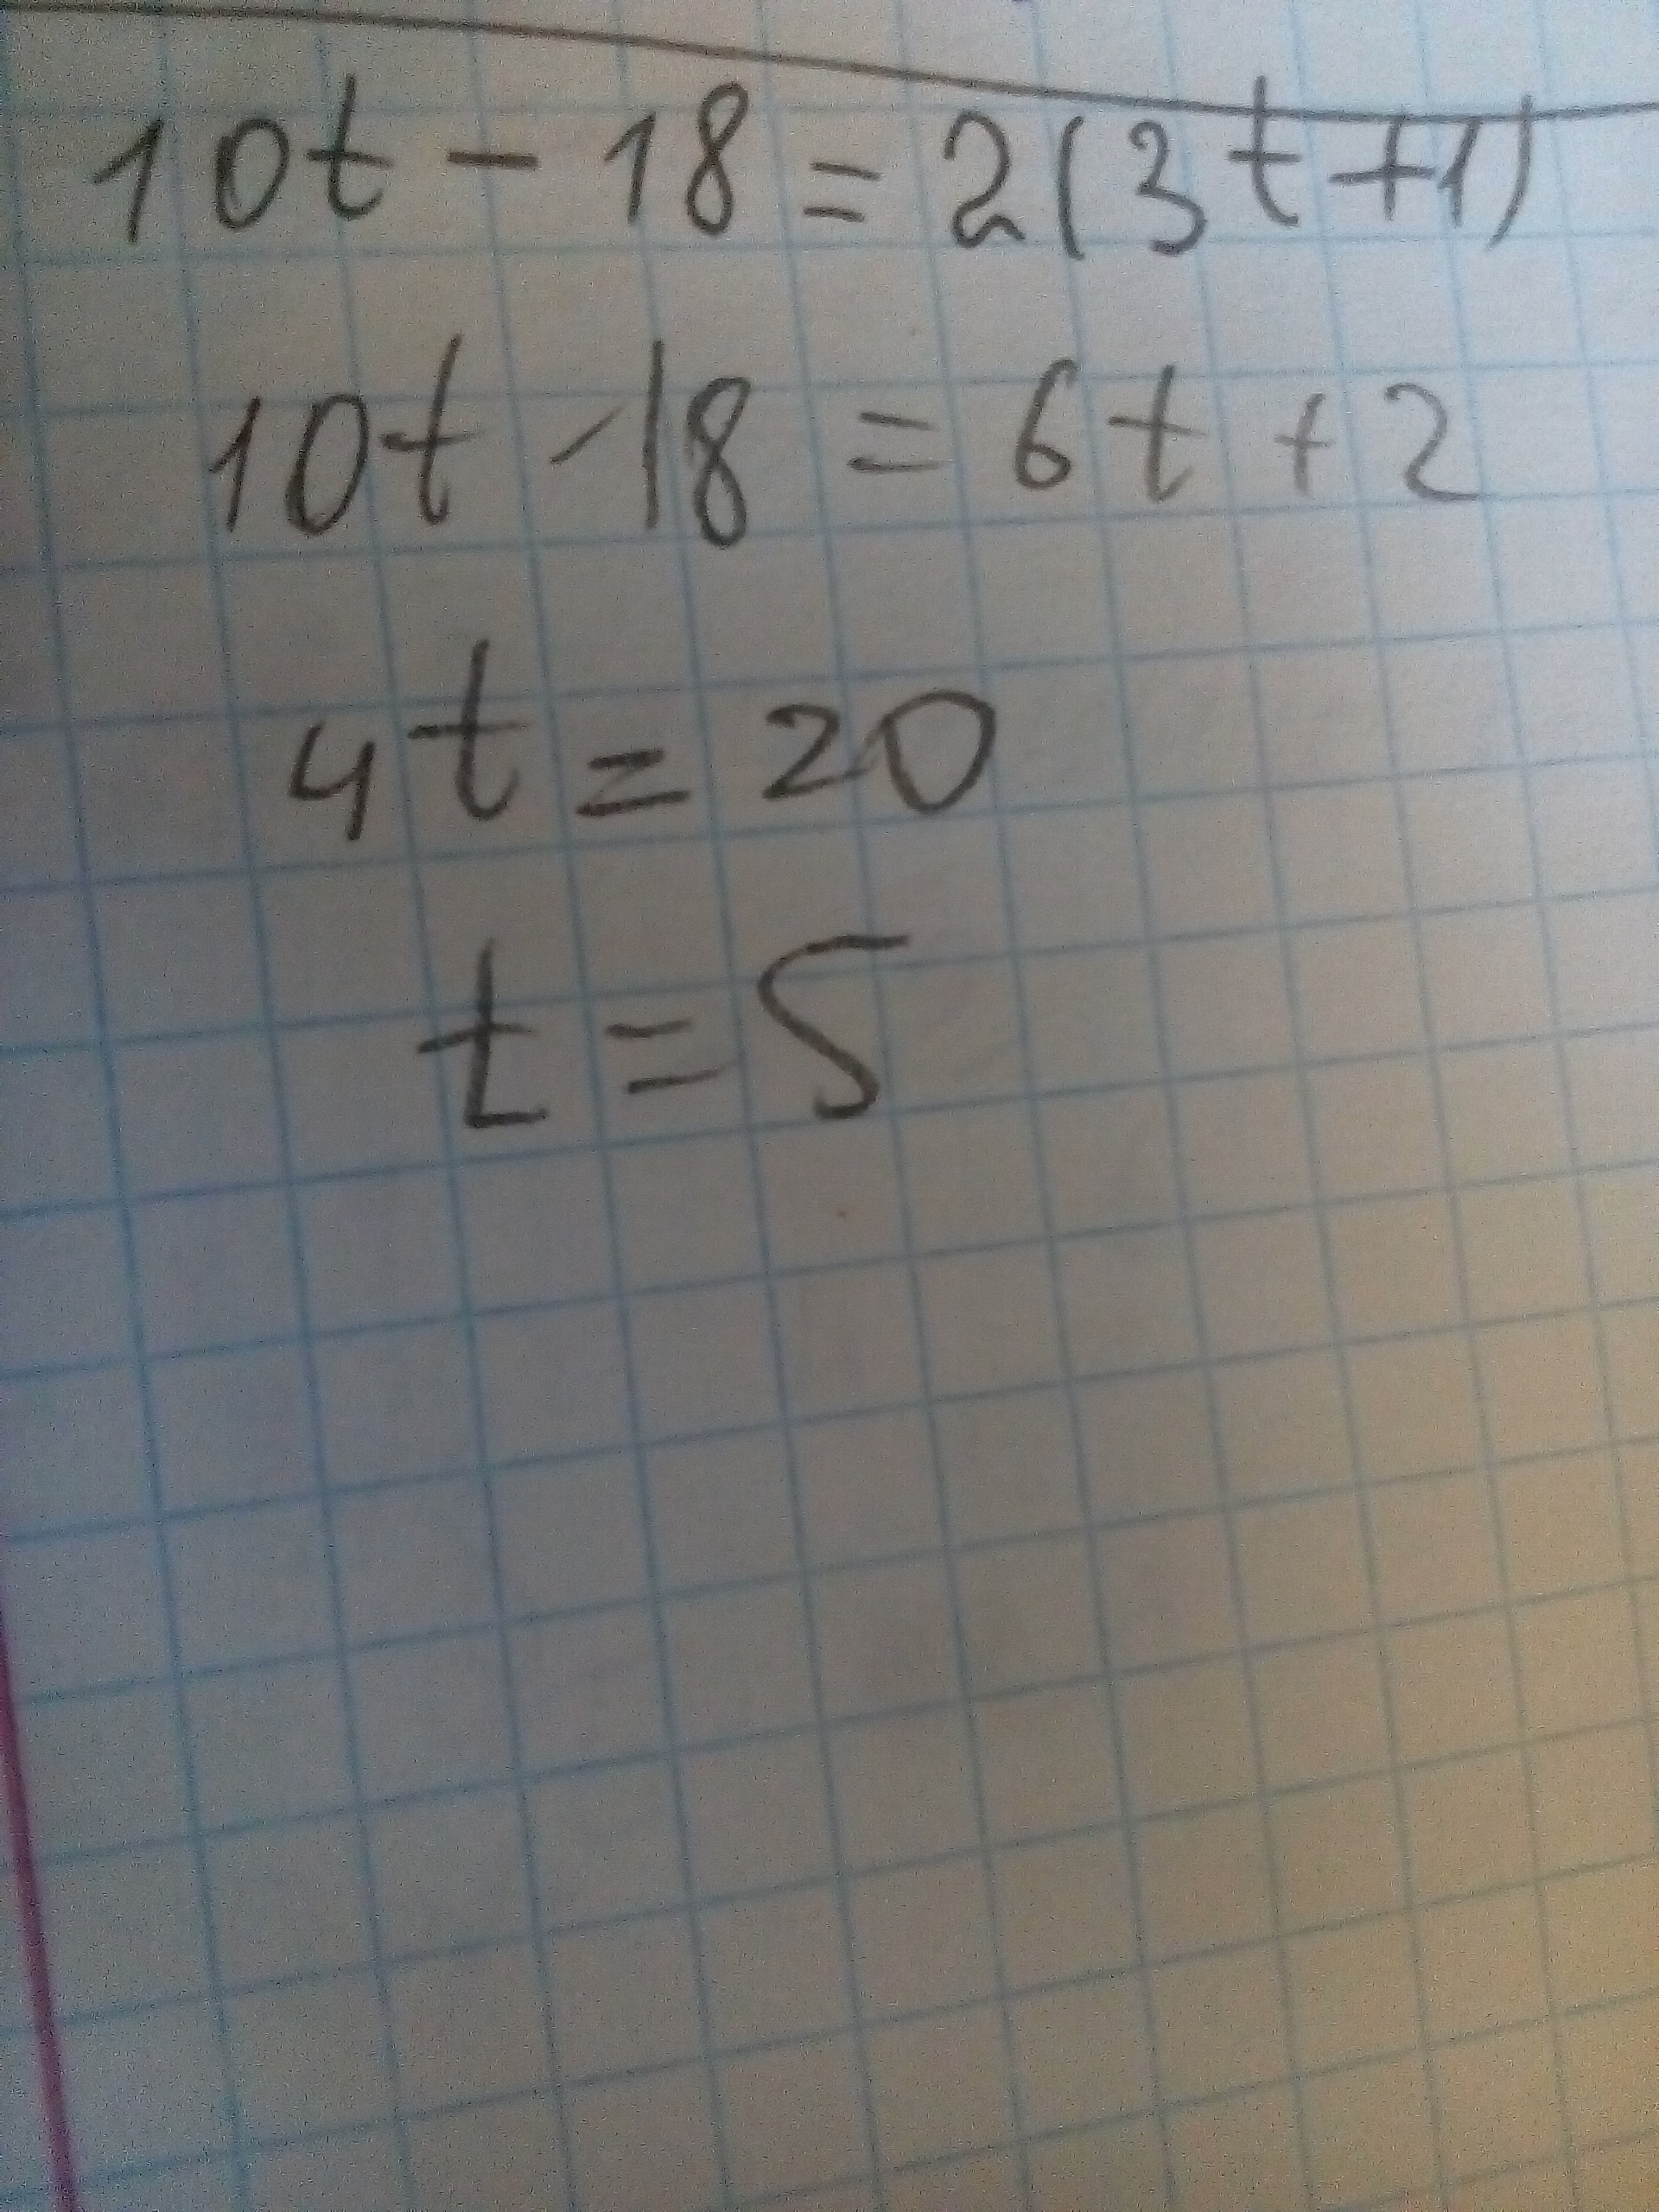 10t - 18 = 2(3t+1)
10t - 18 = 6t + 2
4t = 20
t = 5